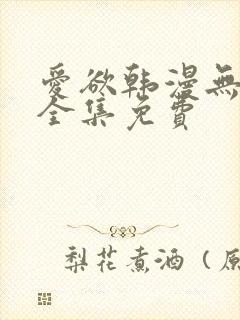 愛欲韩漫無
全集免費
梨花煮酒（原